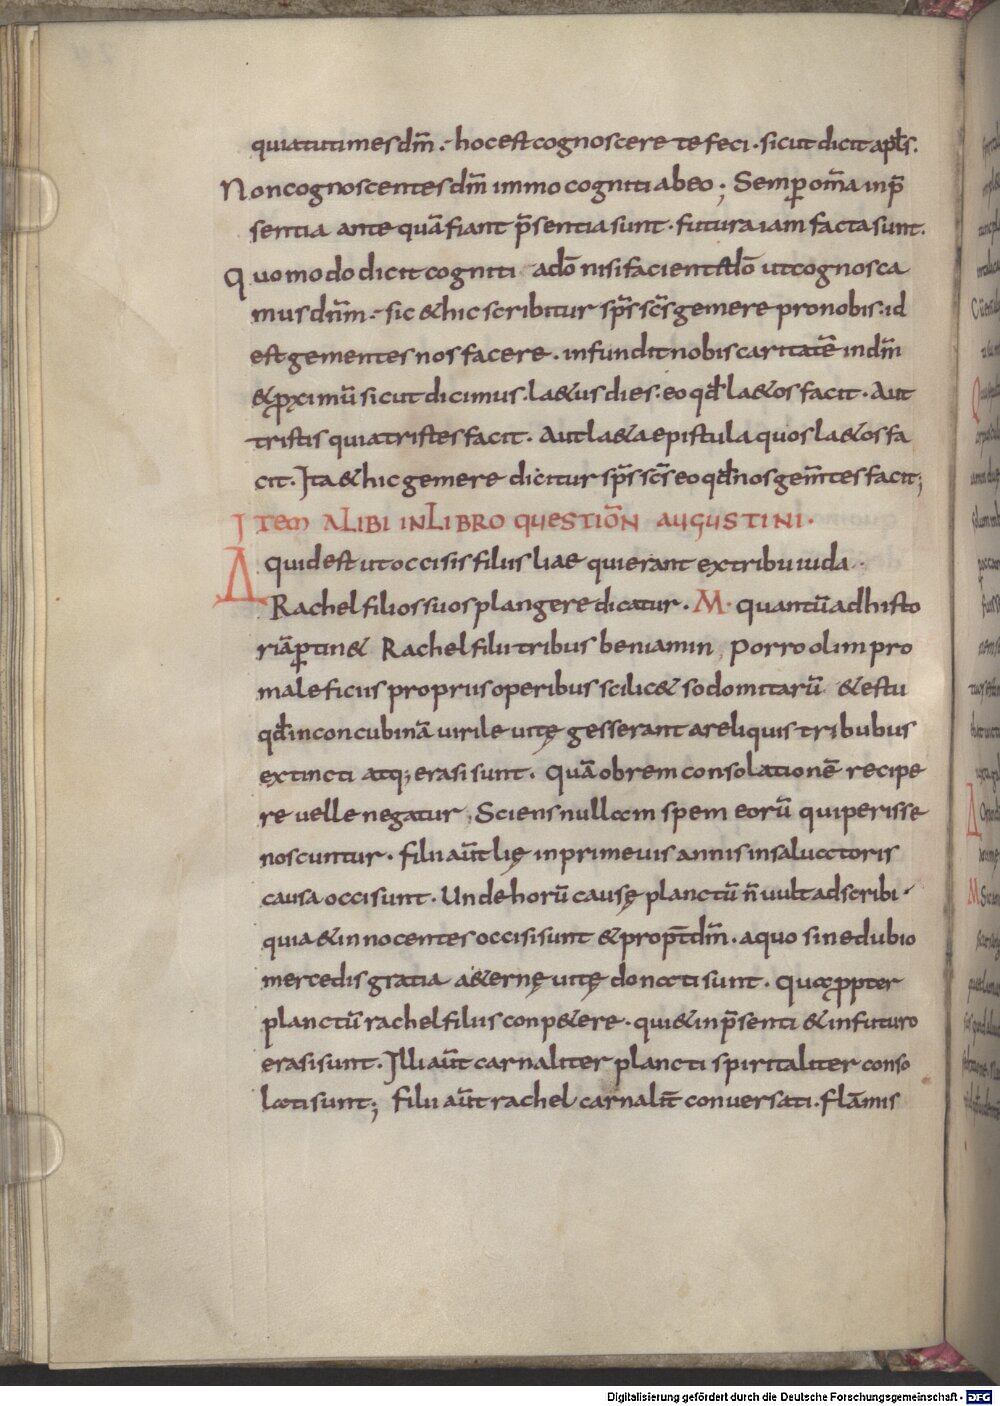 quia tu times dm̄ .- hoc est cognoscere te feci · sicut dicit apl̄s.
Non cognoscentes dm̄ immo cogniti ab eo ; Semꝑ om̄a in p̄
sentia ante quā fiant p̄sentia sunt · futura iam facta sunt.
Quomodo dicit cogniti a dō nisi facient& dō ut cognosca
mus dn̄m .- sic & hic scribitur sp̄s sc̄s gemere pro nobis · id
est gementes nos facere . infundit nobis caritatē in dm̄
& ꝓximū sicut dicimus . la&us dies · eo qđ la&os facit · Aut
tristis quia tristes facit · Aut la&a epistula quos la&os fa
cit · Ita & hic gemere dicitur sp̄s sc̄s eo qđ nos gem̄tes facit ;
ITEM ALIBI IN LIBRO QUESTION̄ AUGUSTINI ·
A quid est ut occisis filiis liae qui erant ex tribu iuda ·
Rachel filios suos plangere dicatur · M · quantū ad histo
riā ꝑtin& Rachel filii tribus beniamin , Porro olim pro
maleficiis propriis operibus scilic& sodomitarū &estu
qđ in concubinā uirile uitę gesserant a reliquis tribubus
extincti atq; erasi sunt . Quā obrem consolationē recipe
re uelle negatur , Sciens nullam spem eorū qui perisse
noscuntur · filii aūt lię in primeuis annis in saluatoris
causa occisi sunt · Unde horū causę planctū n̄ uult adscribi ·
quia & innocentes occisi sunt & propt̄ dm̄ . a quo sine dubio
mercedis gratia a&ernę uitę donati sunt . Quaꝓpter
planctū rachel filiis conp&ere · qui & in p̄senti & in futuro
erasi sunt . Illi aūt carnaliter plancti spiritaliter conso
lati sunt ; filii aūt rachel carnalit̄ conuersati · flāmis
Digitalisierung gefördert durch die Deutsche Forschungsgemeinschaft - DFG